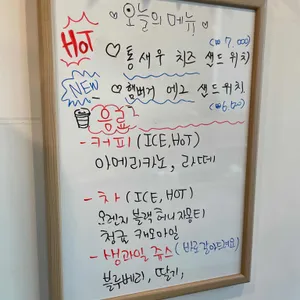 ♡오늘의 메뉴♡
HOT ♡통새우 치즈 샌드위치
(₩7,000)
NEW ♡햄버거 에그 샌드위치
음료
- 커피 (ICE, HOT)
아메리카노, 라떼
- 차 (ICE, HOT)
오렌지 블랙 허니자몽티
청귤 캐모마일
- 생과일 쥬스 (바로갈아드려요)
블루베리, 딸기,